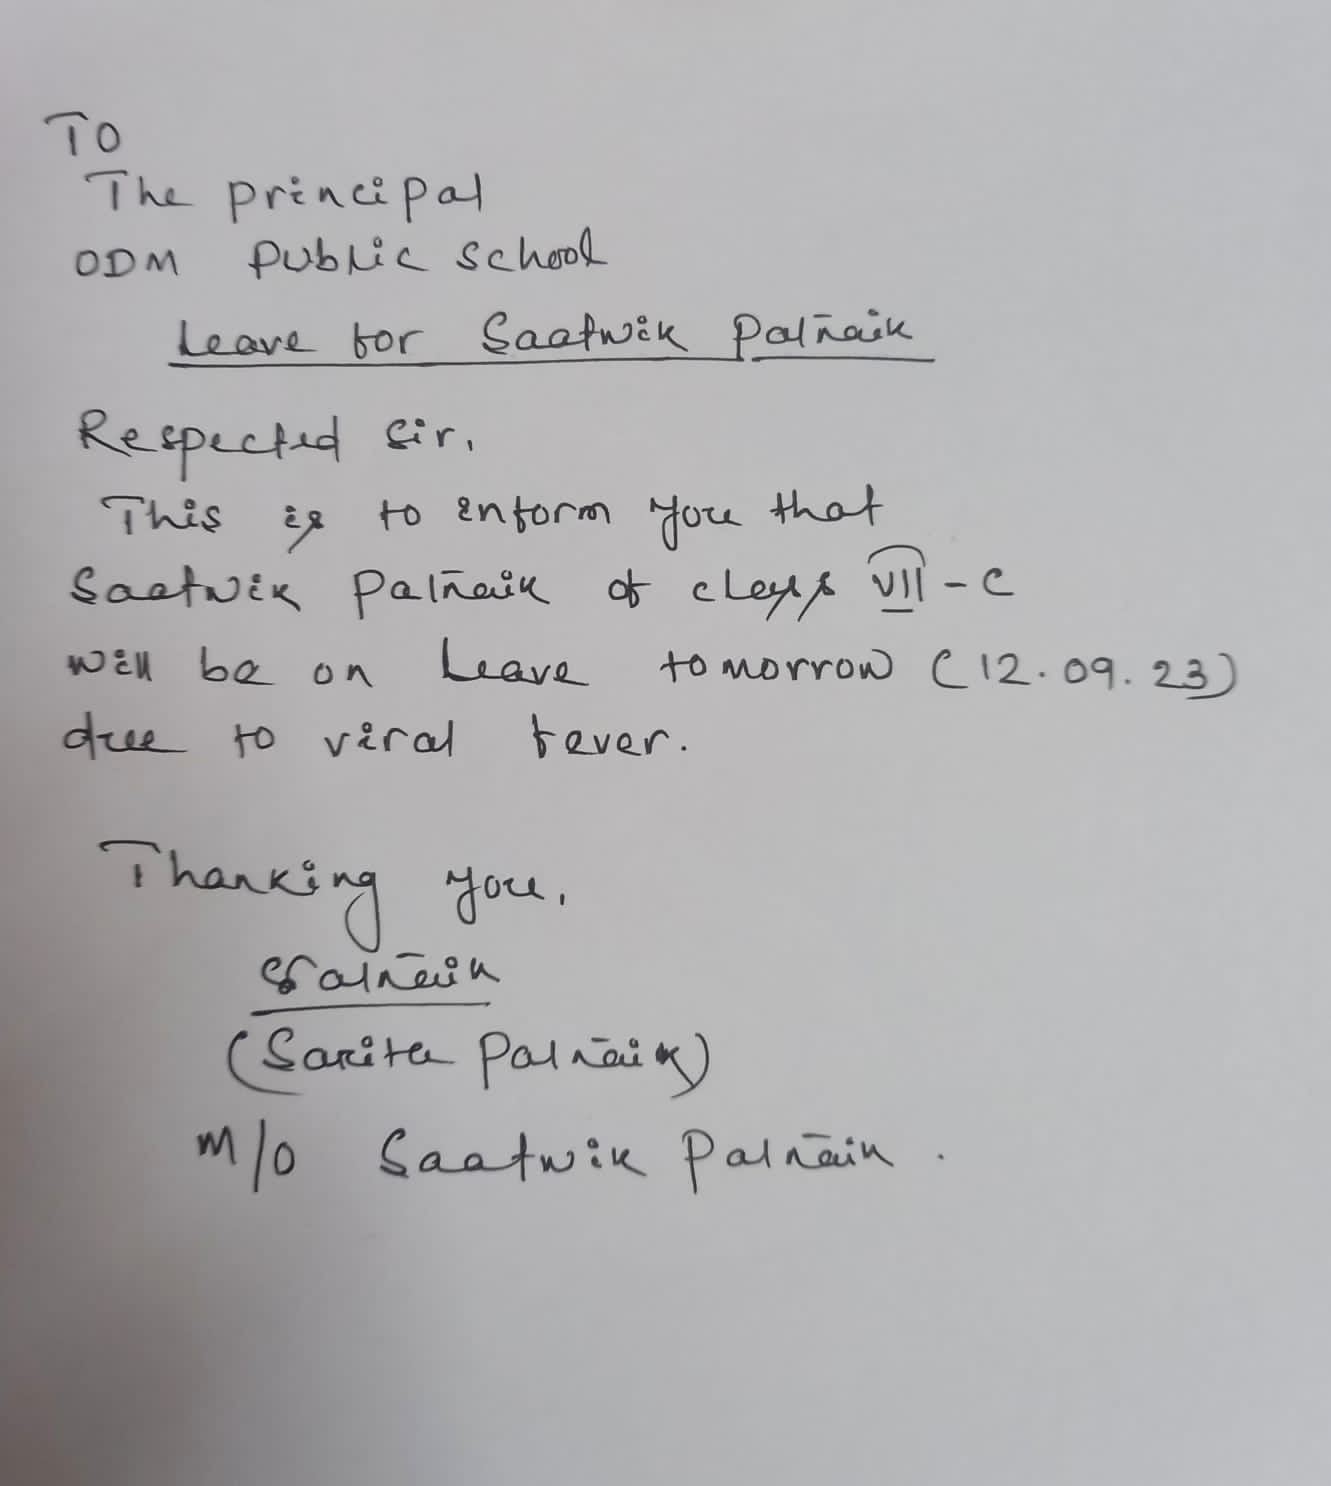 TO
The principal
ODM Public School
Leave for Saatwik Patnaik
Respected Sir,
This is to inform you that
Saatwik Patnaik of class VII - C
will be on leave tomorrow (12.09.23)
due to viral fever.
Thanking you,
SPatnaik
(Sarita Patnaik)
M/O Saatwik Patnaik.